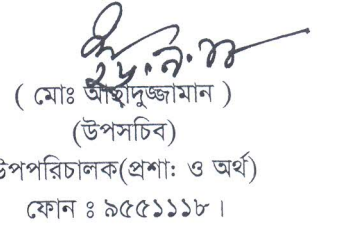 ২৮.৭.১১
( মোঃ আছাদুজ্জামান )
(উপসচিব)
উপপরিচালক(প্রশা: ও অর্থ)
ফোন ঃ ৯৫৫১১১৮ ।